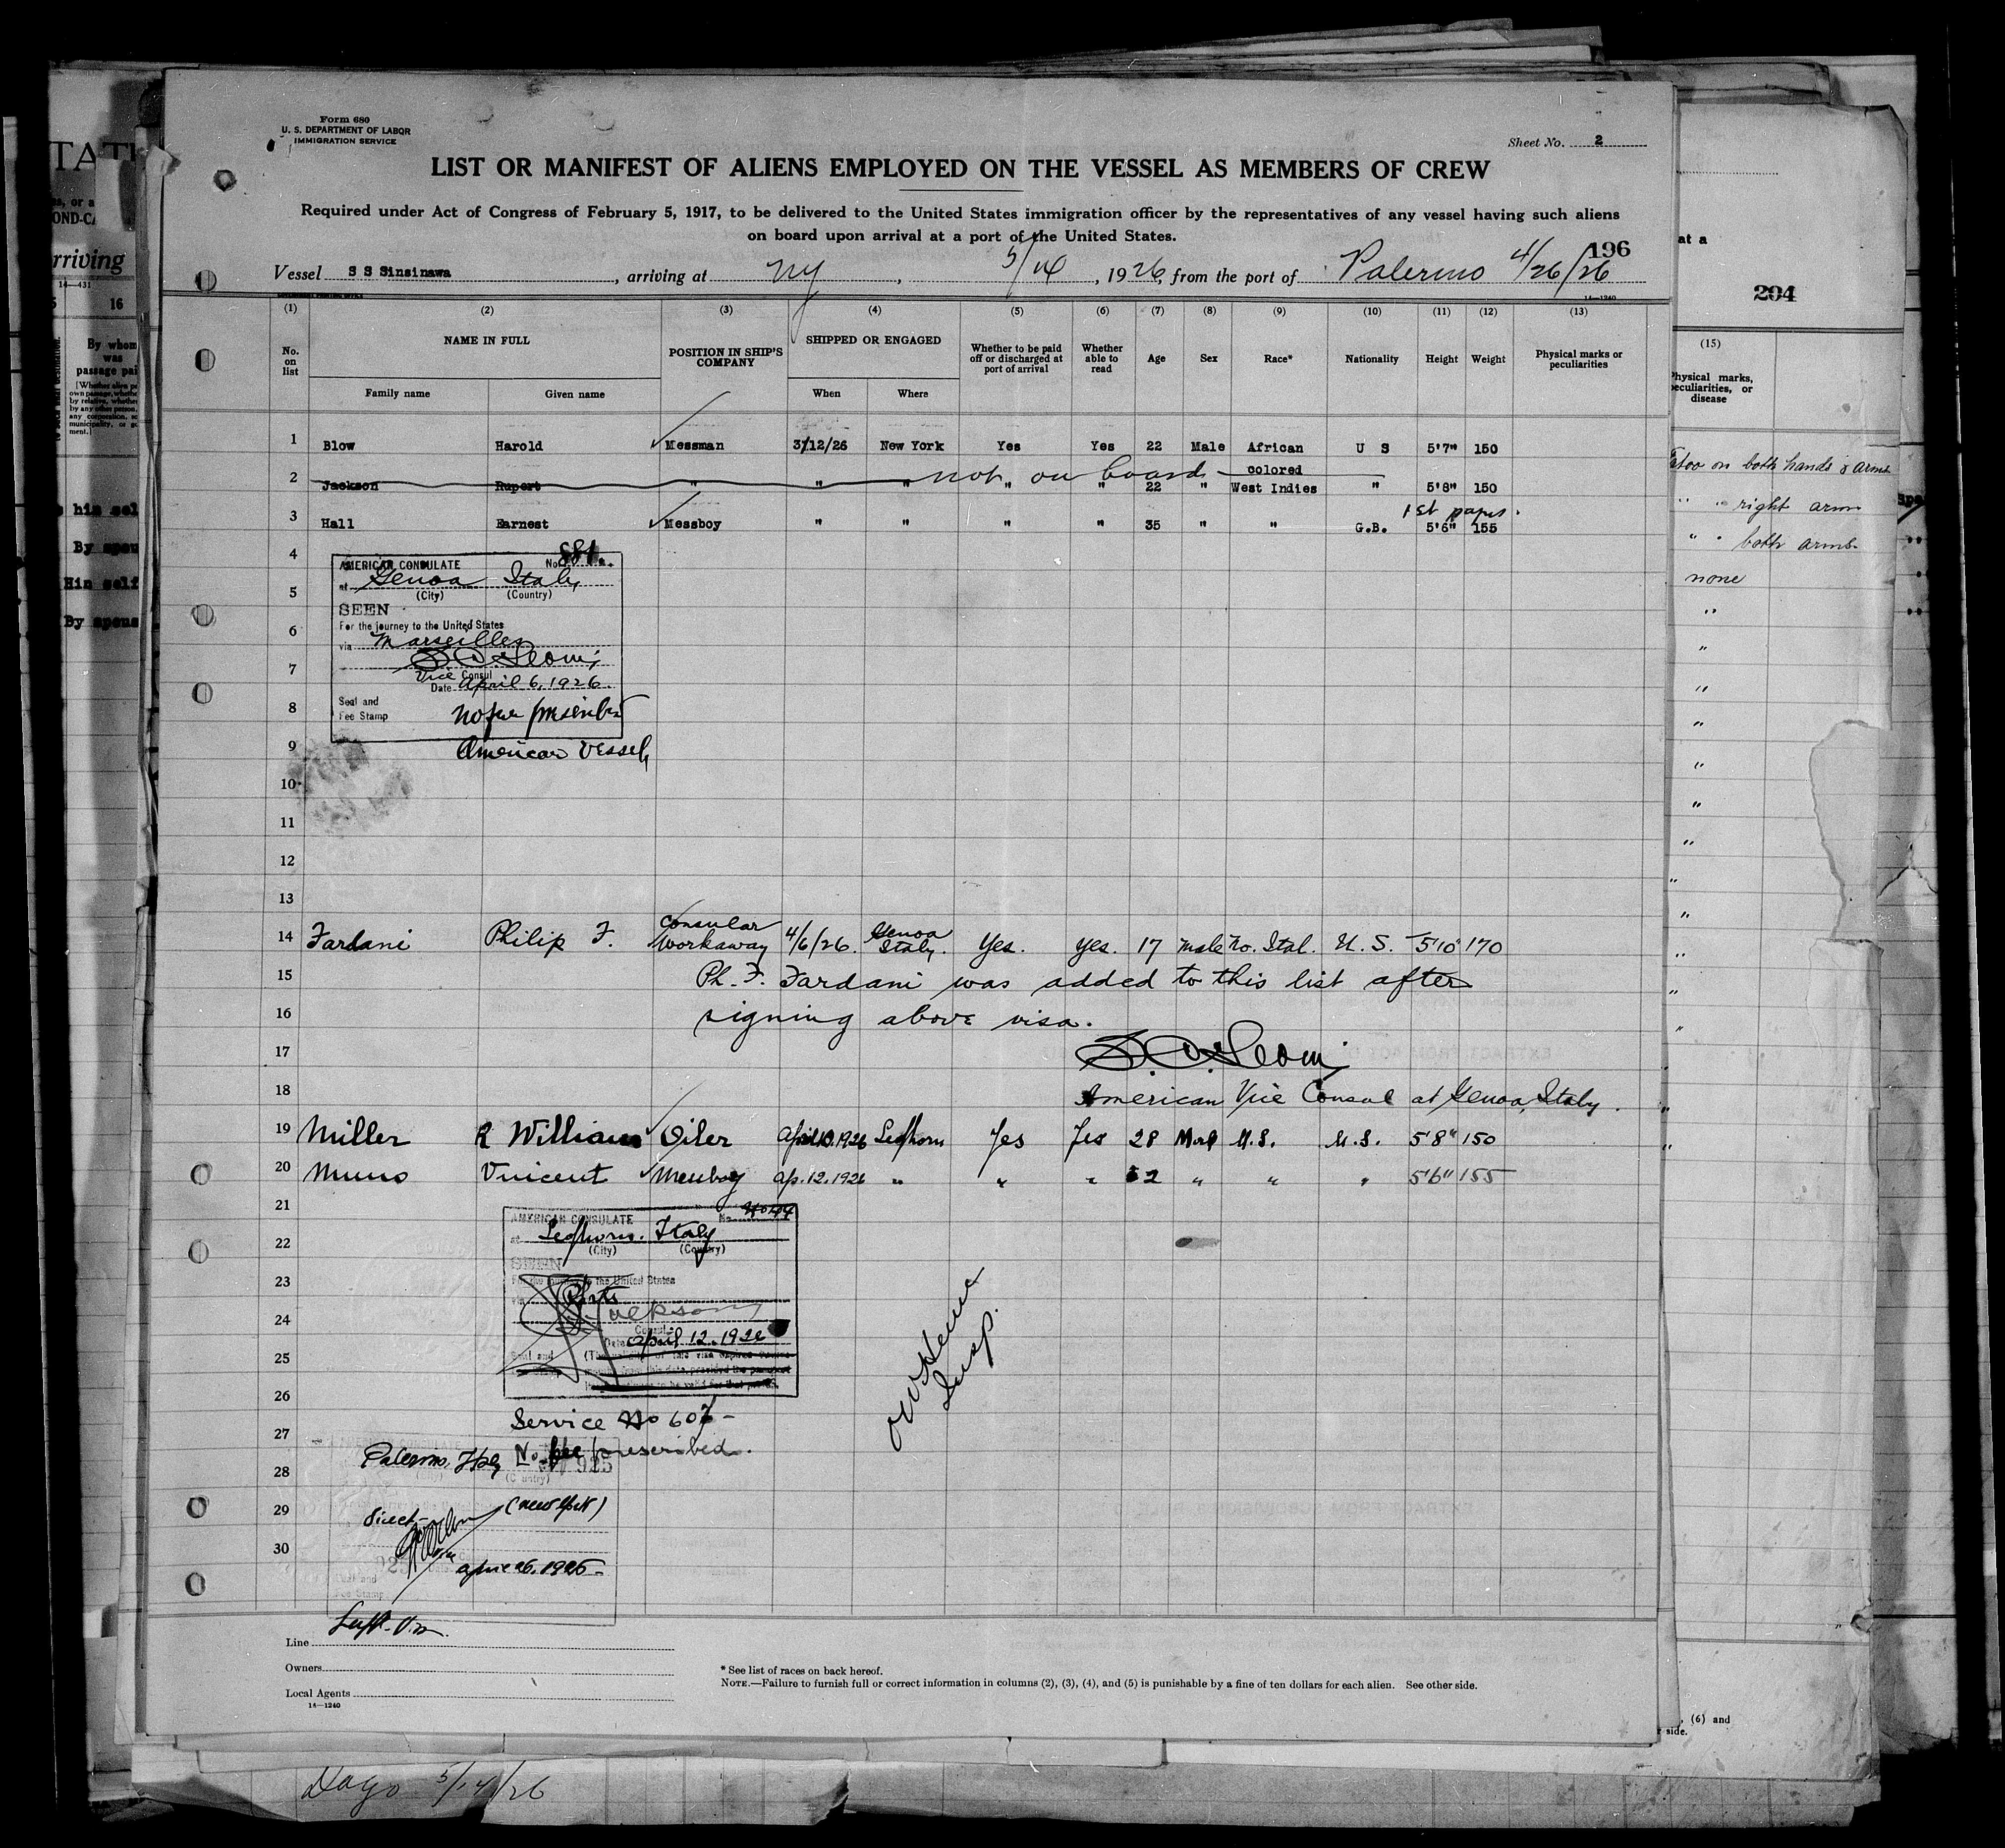 Form 680
U. S. DEPARTMENT OF LABOR
IMMIGRATION SERVICE
Sheet No. 2
LIST OR MANIFEST OF ALIENS EMPLOYED ON THE VESSEL AS MEMBERS OF CREW
Required under Act of Congress of February 5, 1917, to be delivered to the United States immigration officer by the representatives of any vessel having such aliens
on board upon arrival at a port of the United States.
196
Vessel S S Sinsinawa, arriving at NY, 5/14, 1926, from the port of Palermo 4/26/26
14—1240
(1) (2) (3) (4) (5) (6) (7) (8) (9) (10) (11) (12) (13)
No. on list NAME IN FULL POSITION IN SHIP'S COMPANY SHIPPED OR ENGAGED Whether to be paid off or discharged at port of arrival Whether able to read Age Sex Race* Nationality Height Weight Physical marks or peculiarities
Family name Given name When Where
1 Blow Harold Messman 3/12/26 New York Yes Yes 22 Male African U S 5'7" 150
not on board colored
2 Jackson Rupert " " " " " 22 " West Indies " 5'8" 150
1st papers.
3 Hall Earnest Messboy " " " " 35 " " G.B. 5'6" 155
4
AMERICAN CONSULATE No. 881
5
at Genoa Italy
(City) (Country)
SEEN
6
For the journey to the United States
via Marseilles
7
Vice Consul
Date April 6, 1926
8
Seal and
Fee Stamp
No fee prescribed
9
American Vessel
10
11
12
13
14 Fardani Philip F. Consular Workaway 4/6/26. Genoa Italy. Yes. Yes. 17 male No. Ital. U. S. 5'10" 170
15 Ph. F. Fardani was added to this list after
16 signing above visa.
17
18 American Vice Consul at Genoa, Italy.
19 Miller R William Oiler April 10.1926 Leghorn Yes Yes 28 U.S. U.S. 5'8" 150
20 Vincent Messboy Ap. 12. 1926 " " " 52 " " " 5'6" 155
21
AMERICAN CONSULATE No.
22
at Leghorn. Italy
(City) (Country)
SEEN
23
For the journey to the United States
24
Consul
Date April 12. 1926
25
Seal and
26
Service No 607-
27
No fee prescribed.
Palermo, Italy
925
28
(Country)
29
direct- (New York)
30
April 26. 1926-
Insp.
Line
Owners
Local Agents
14—1240
* See list of races on back hereof.
NOTE.—Failure to furnish full or correct information in columns (2), (3), (4), and (5) is punishable by a fine of ten dollars for each alien. See other side.
Dago 5/14/26
at a
204
(15)
Physical marks, peculiarities, or disease
Tatoo on both hands & arms
" " right arm
" " both arms.
none
, (6) and
side.
arriving
14—431
16
By whom
was
passage pai